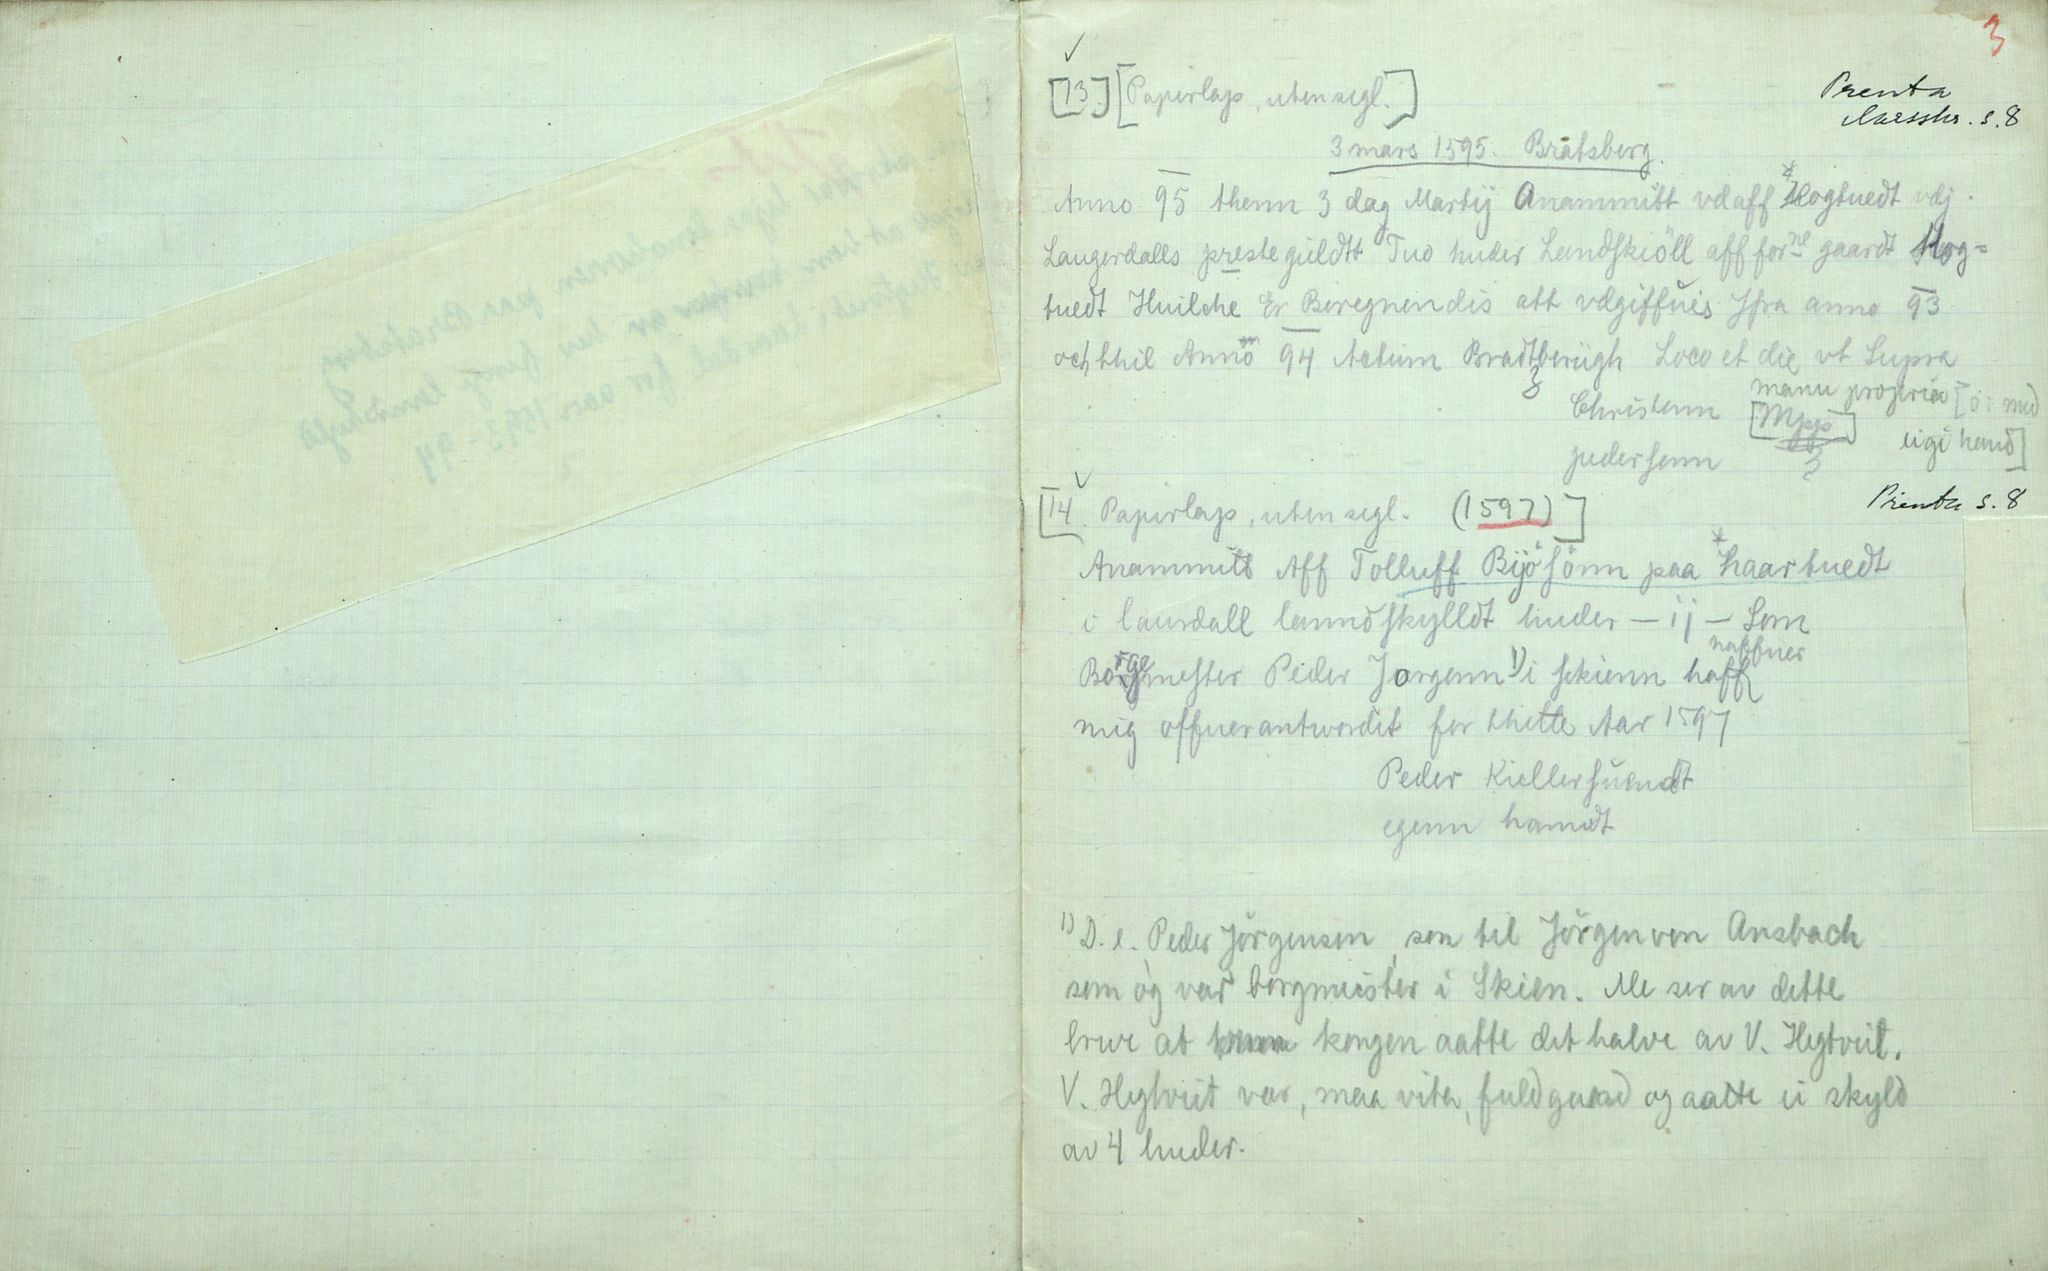 3
✓
[13.] [Papirlap, uten segl.]
Prenta
Aarsskr. s. 8
3 mars 1595. Bratsberg.
Anno 95 thenn 3 dag Martij Anammitt vdaff *Hogtuedt vdj
Laugerdalls prestegieldtt Tuo huder Landskiöll aff for.ne gaardt Hog=
tuedt Huilche Er Beregnendis att vdgiffues Jfra anno 93
och thil Anno 94 Actum Bradtberigh Loco et die vt Supra
manu propria [ɔ: med
Christenn [Mpp] eigi hand]
pedersenn
✓
[14. Papirlap, uten segl. (1597)]
Prenta s. 8
Anammitt Aff Tolluff Bijösönn paa *haartuedt
i laurdall lanndskylldt huder – ij – Som
naffner
Borgemester Peder Jorgenn 1) i skienn haff
mig offuerantwordit for thette Aar 1597
Peder Kiellersuendt
egenn hanndt
1) D. e. Peder Jörgensen, son til Jörgen von Ansbach
som og var borgmeister i Skien. Me ser av dette
breve at kongen aatte det halve av V. Hegtveit.
V. Hegtveit var, maa vita, fuldgaard og aatte ei skyld
av 4 huder.